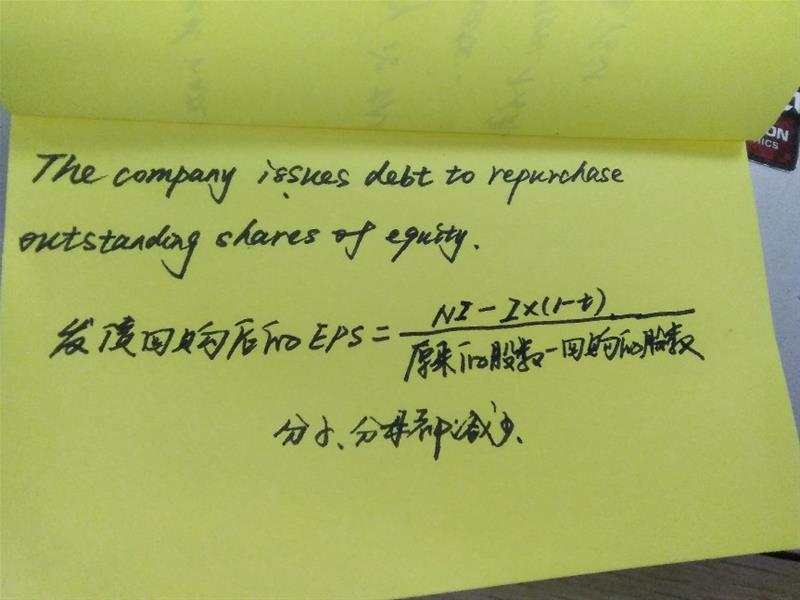 The company issues debt to repurchase
outstanding shares of equity.
发债回购后的EPS = NI - I×(1-t) / 原来的股数-回购的股数
分子、分母都减少.
ON
ICS